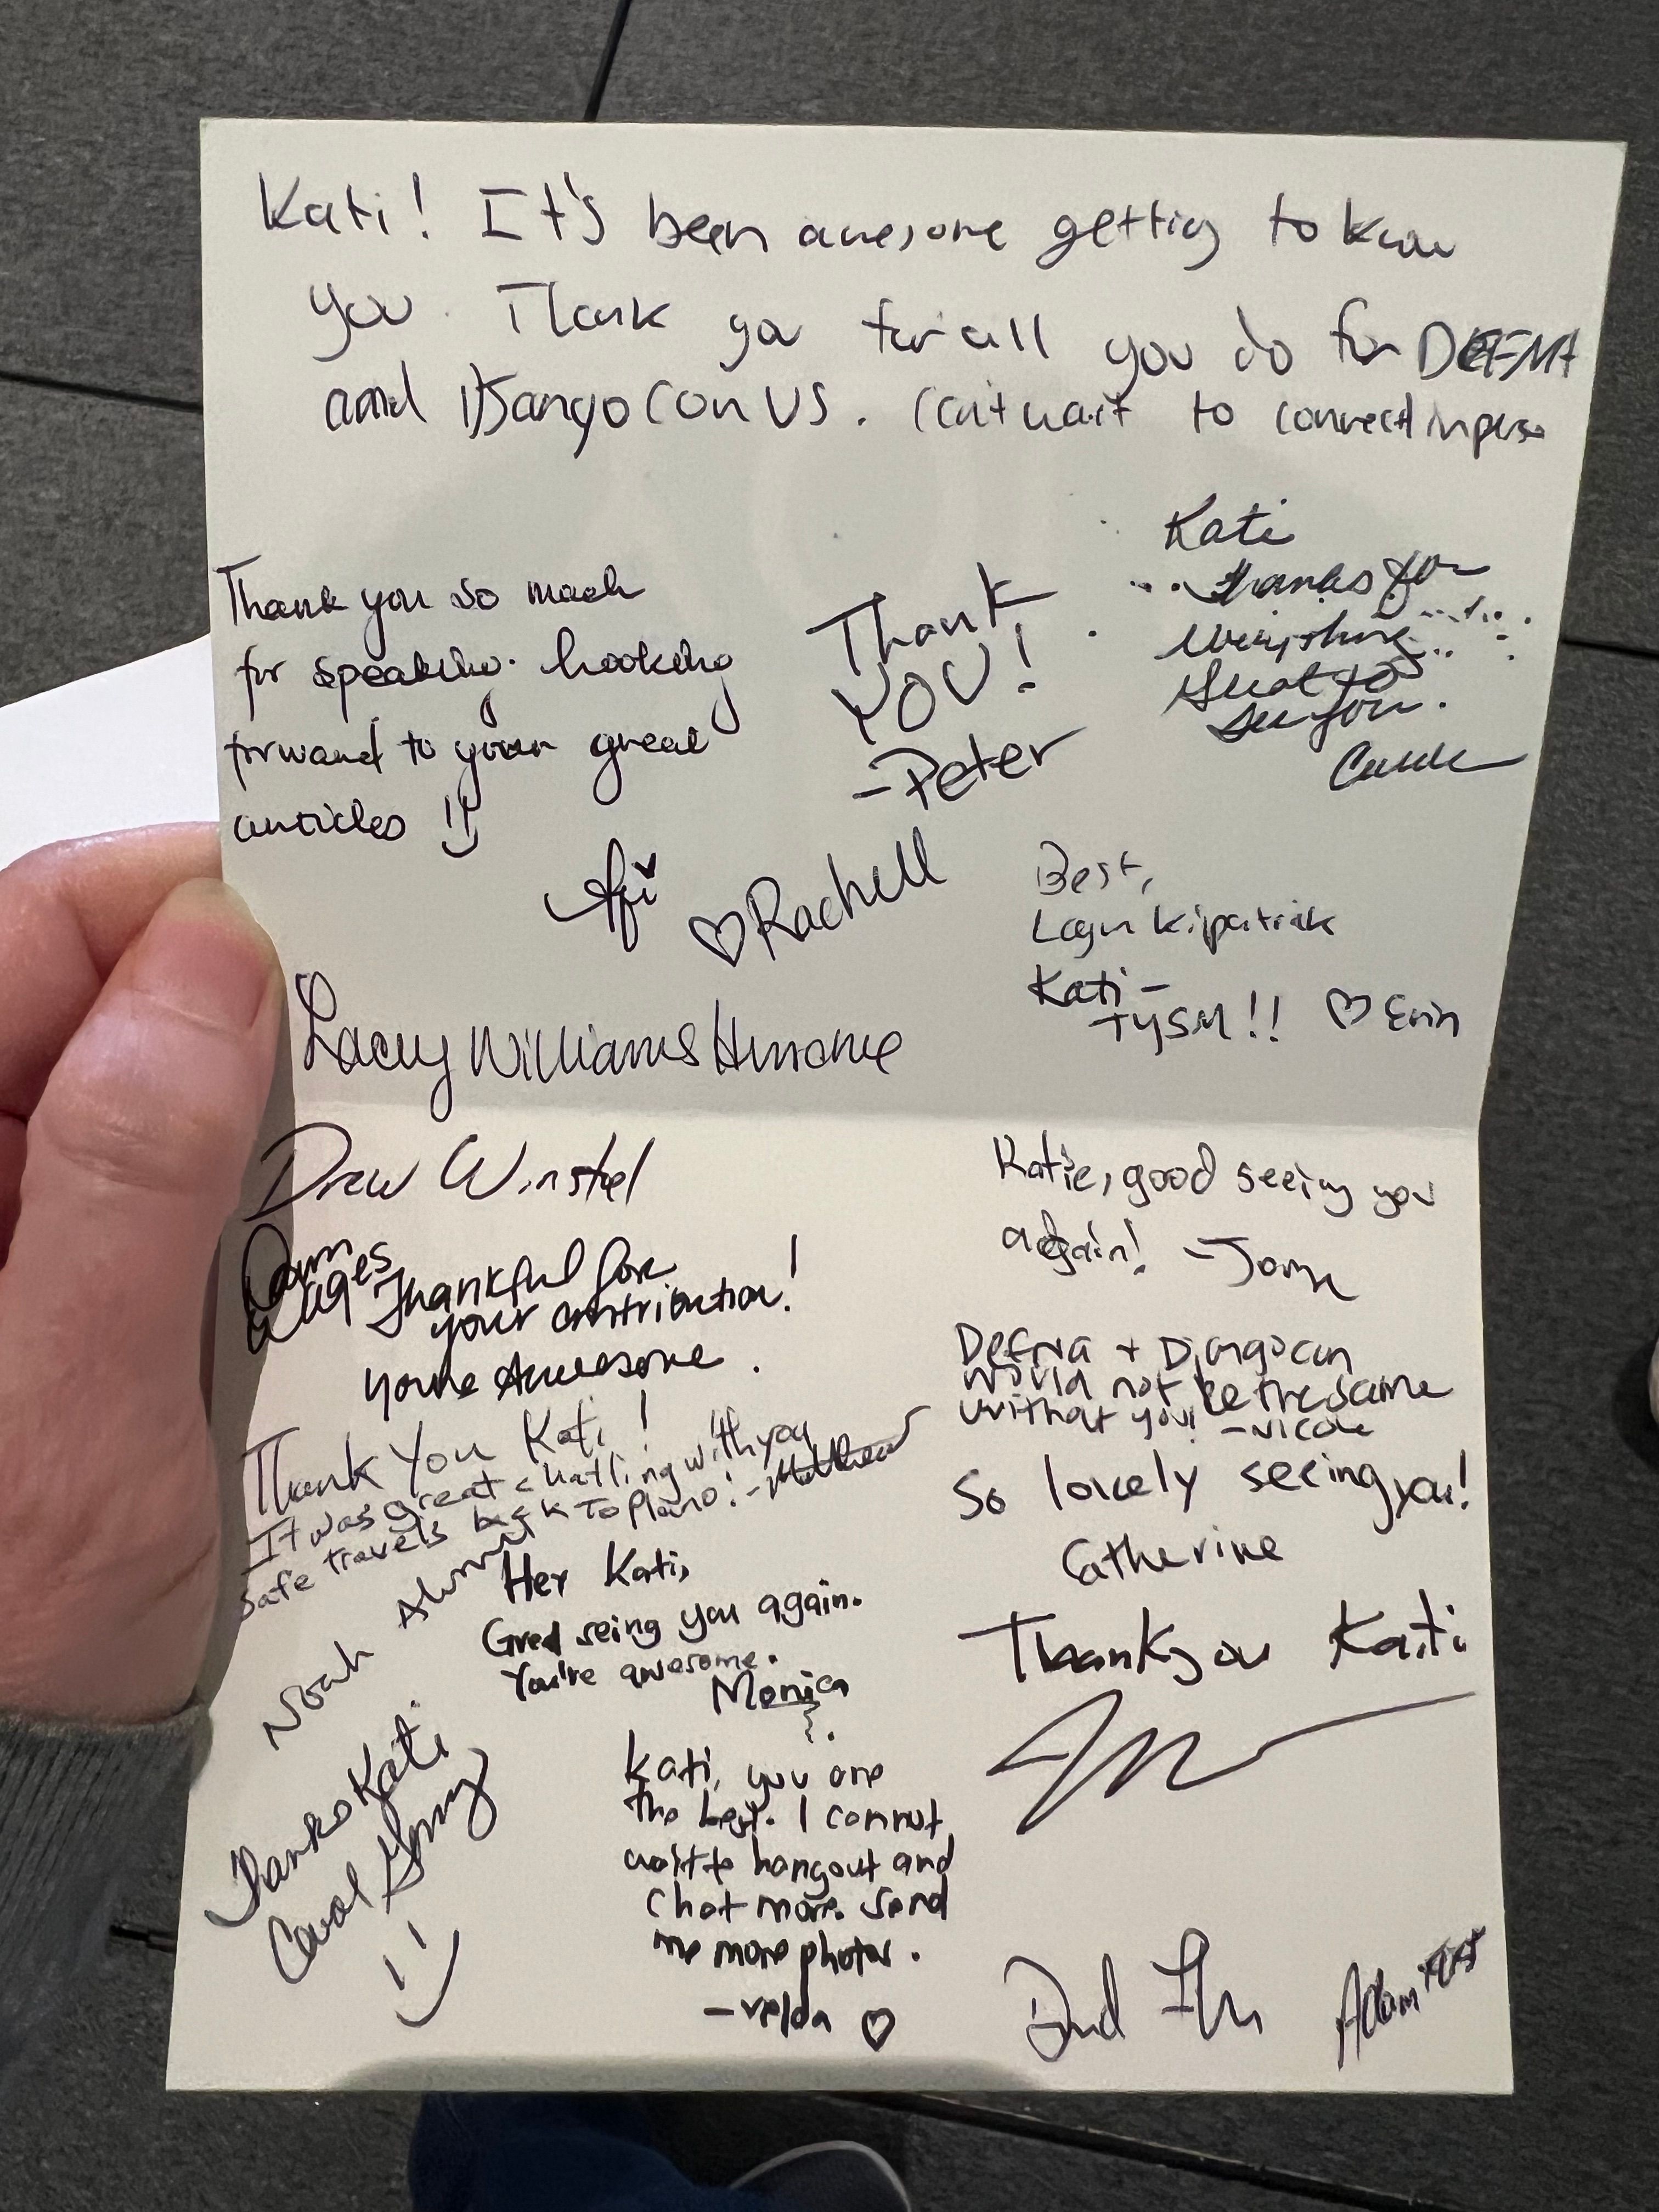 Kati! It's been awesome getting to know
you. Thank you for all you do for DEFNA
and DjangoCon US. Can't wait to connect in person
Thank you so much
for speaking. Looking
forward to your great
articles :)
Thank
YOU!
-Peter
Kati
thanks for
everything
Great to
see you.
♡ Rachell
Best,
Logan Kilpatrick
Kati -
TYSM!! ♡ Erin
Lacey Williams Henschel
Drew Winstel
Dawn
Wages
Thankful for
your contribution!
you're Awesome.
Thank You Kati!
It was great chatling with you
Safe travels back to Plano! - Matthew
Noah
Hey Kati,
Great seing you again.
You're awesome.
Monica
Thanks Kati
Carol
:)
Kati, you are
the best. I cannot
wait to hangout and
chat more. Send
me more photos.
-Velda ♡
Katie, good seeing you
again!
DEFNA + Djangocon
would not be the same
without you! -Nicole
So lovely seeing you!
Catherine
Thank you Kati
Adam